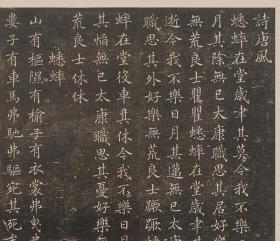 詩唐風
蟋蟀在堂歲聿其莫今我不樂
月其除無已太康職思其居好樂
無荒良士瞿瞿蟋蟀在堂歲聿
逝今我不樂日月其邁無已太康
職思其外好樂無荒良士蹶蹶
蟀在堂役車其休今我不樂日
其慆無已太康職思其憂好樂
荒良士休休
蟋蟀
山有樞隰有榆子有衣裳弗曳弗
婁子有車馬弗馳弗驅宛其死